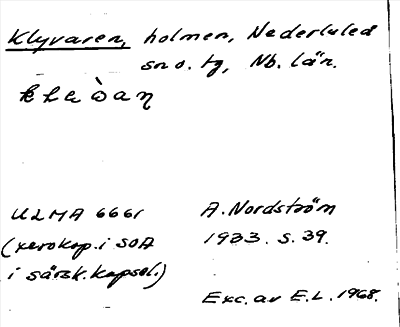 Klyvaren, holmen, Nederluleå
sn o. tg, Nb. län.
ULMA 6661
(xerokop. i SOA
i särsk. kapsel.)
A. Nordström
1933. S. 39.
Exc. av E.L. 1968.